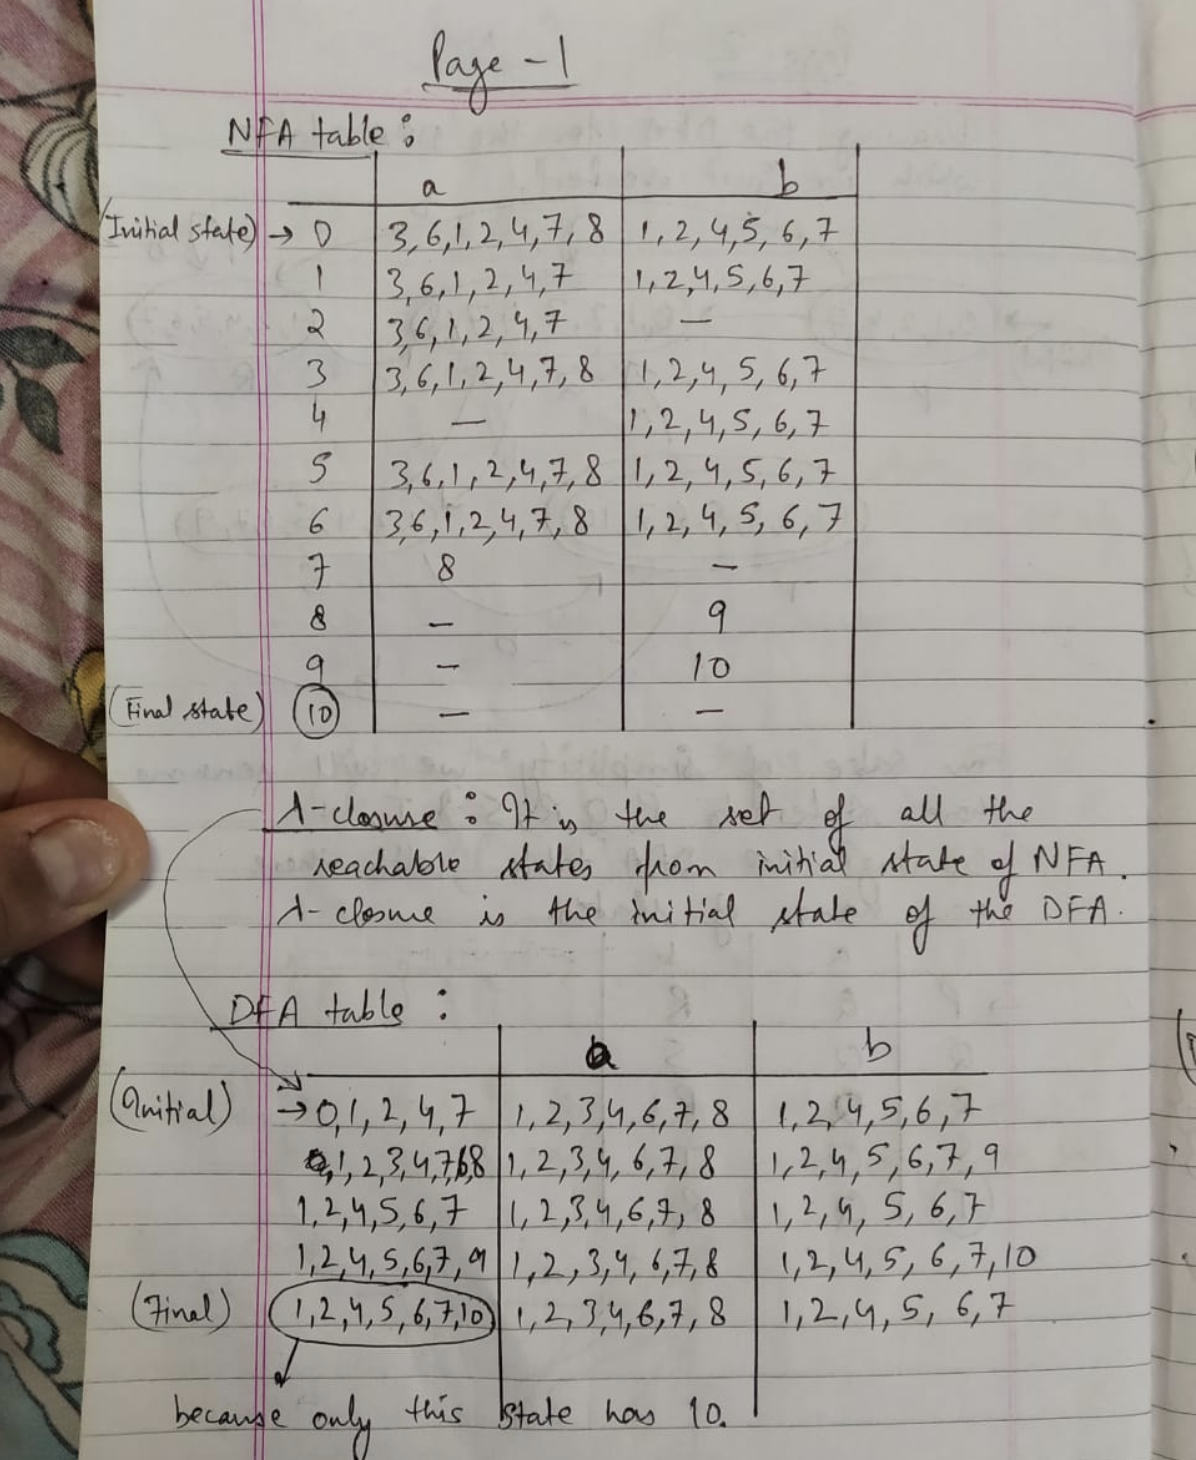 Page - 1
NFA table :
a b
(Initial state) → 0 3,6,1,2,4,7,8 1,2,4,5,6,7
1 3,6,1,2,4,7 1,2,4,5,6,7
2 3,6,1,2,4,7 —
3 3,6,1,2,4,7,8 1,2,4,5,6,7
4 — 1,2,4,5,6,7
5 3,6,1,2,4,7,8 1,2,4,5,6,7
6 3,6,1,2,4,7,8 1,2,4,5,6,7
7 8 —
8 — 9
9 — 10
(Final state) 10 — —
λ-closure : It is the set of all the
reachable states from initial state of NFA.
λ-closure is the initial state of the DFA.
DFA table :
a b
(Initial) → 0,1,2,4,7 1,2,3,4,6,7,8 1,2,4,5,6,7
1,2,3,4,7,6,8 1,2,3,4,6,7,8 1,2,4,5,6,7,9
1,2,4,5,6,7 1,2,3,4,6,7,8 1,2,4,5,6,7
1,2,4,5,6,7,9 1,2,3,4,6,7,8 1,2,4,5,6,7,10
(Final) 1,2,4,5,6,7,10 1,2,3,4,6,7,8 1,2,4,5,6,7
because only this state has 10.